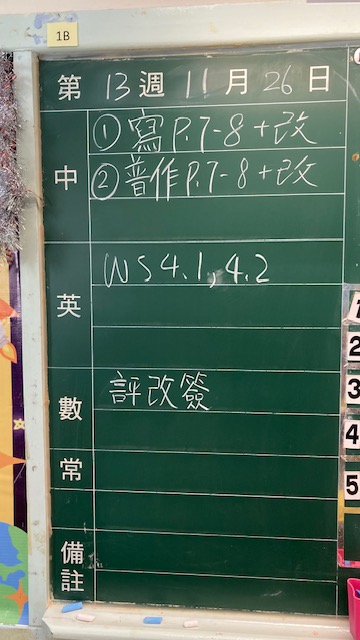 1B
第 13 週 11 月 26 日
中 ①寫 P.7-8 + 改
②普作 P.7-8 + 改
英 WS 4.1, 4.2
數 評改簽
常
備註
2
3
4
5